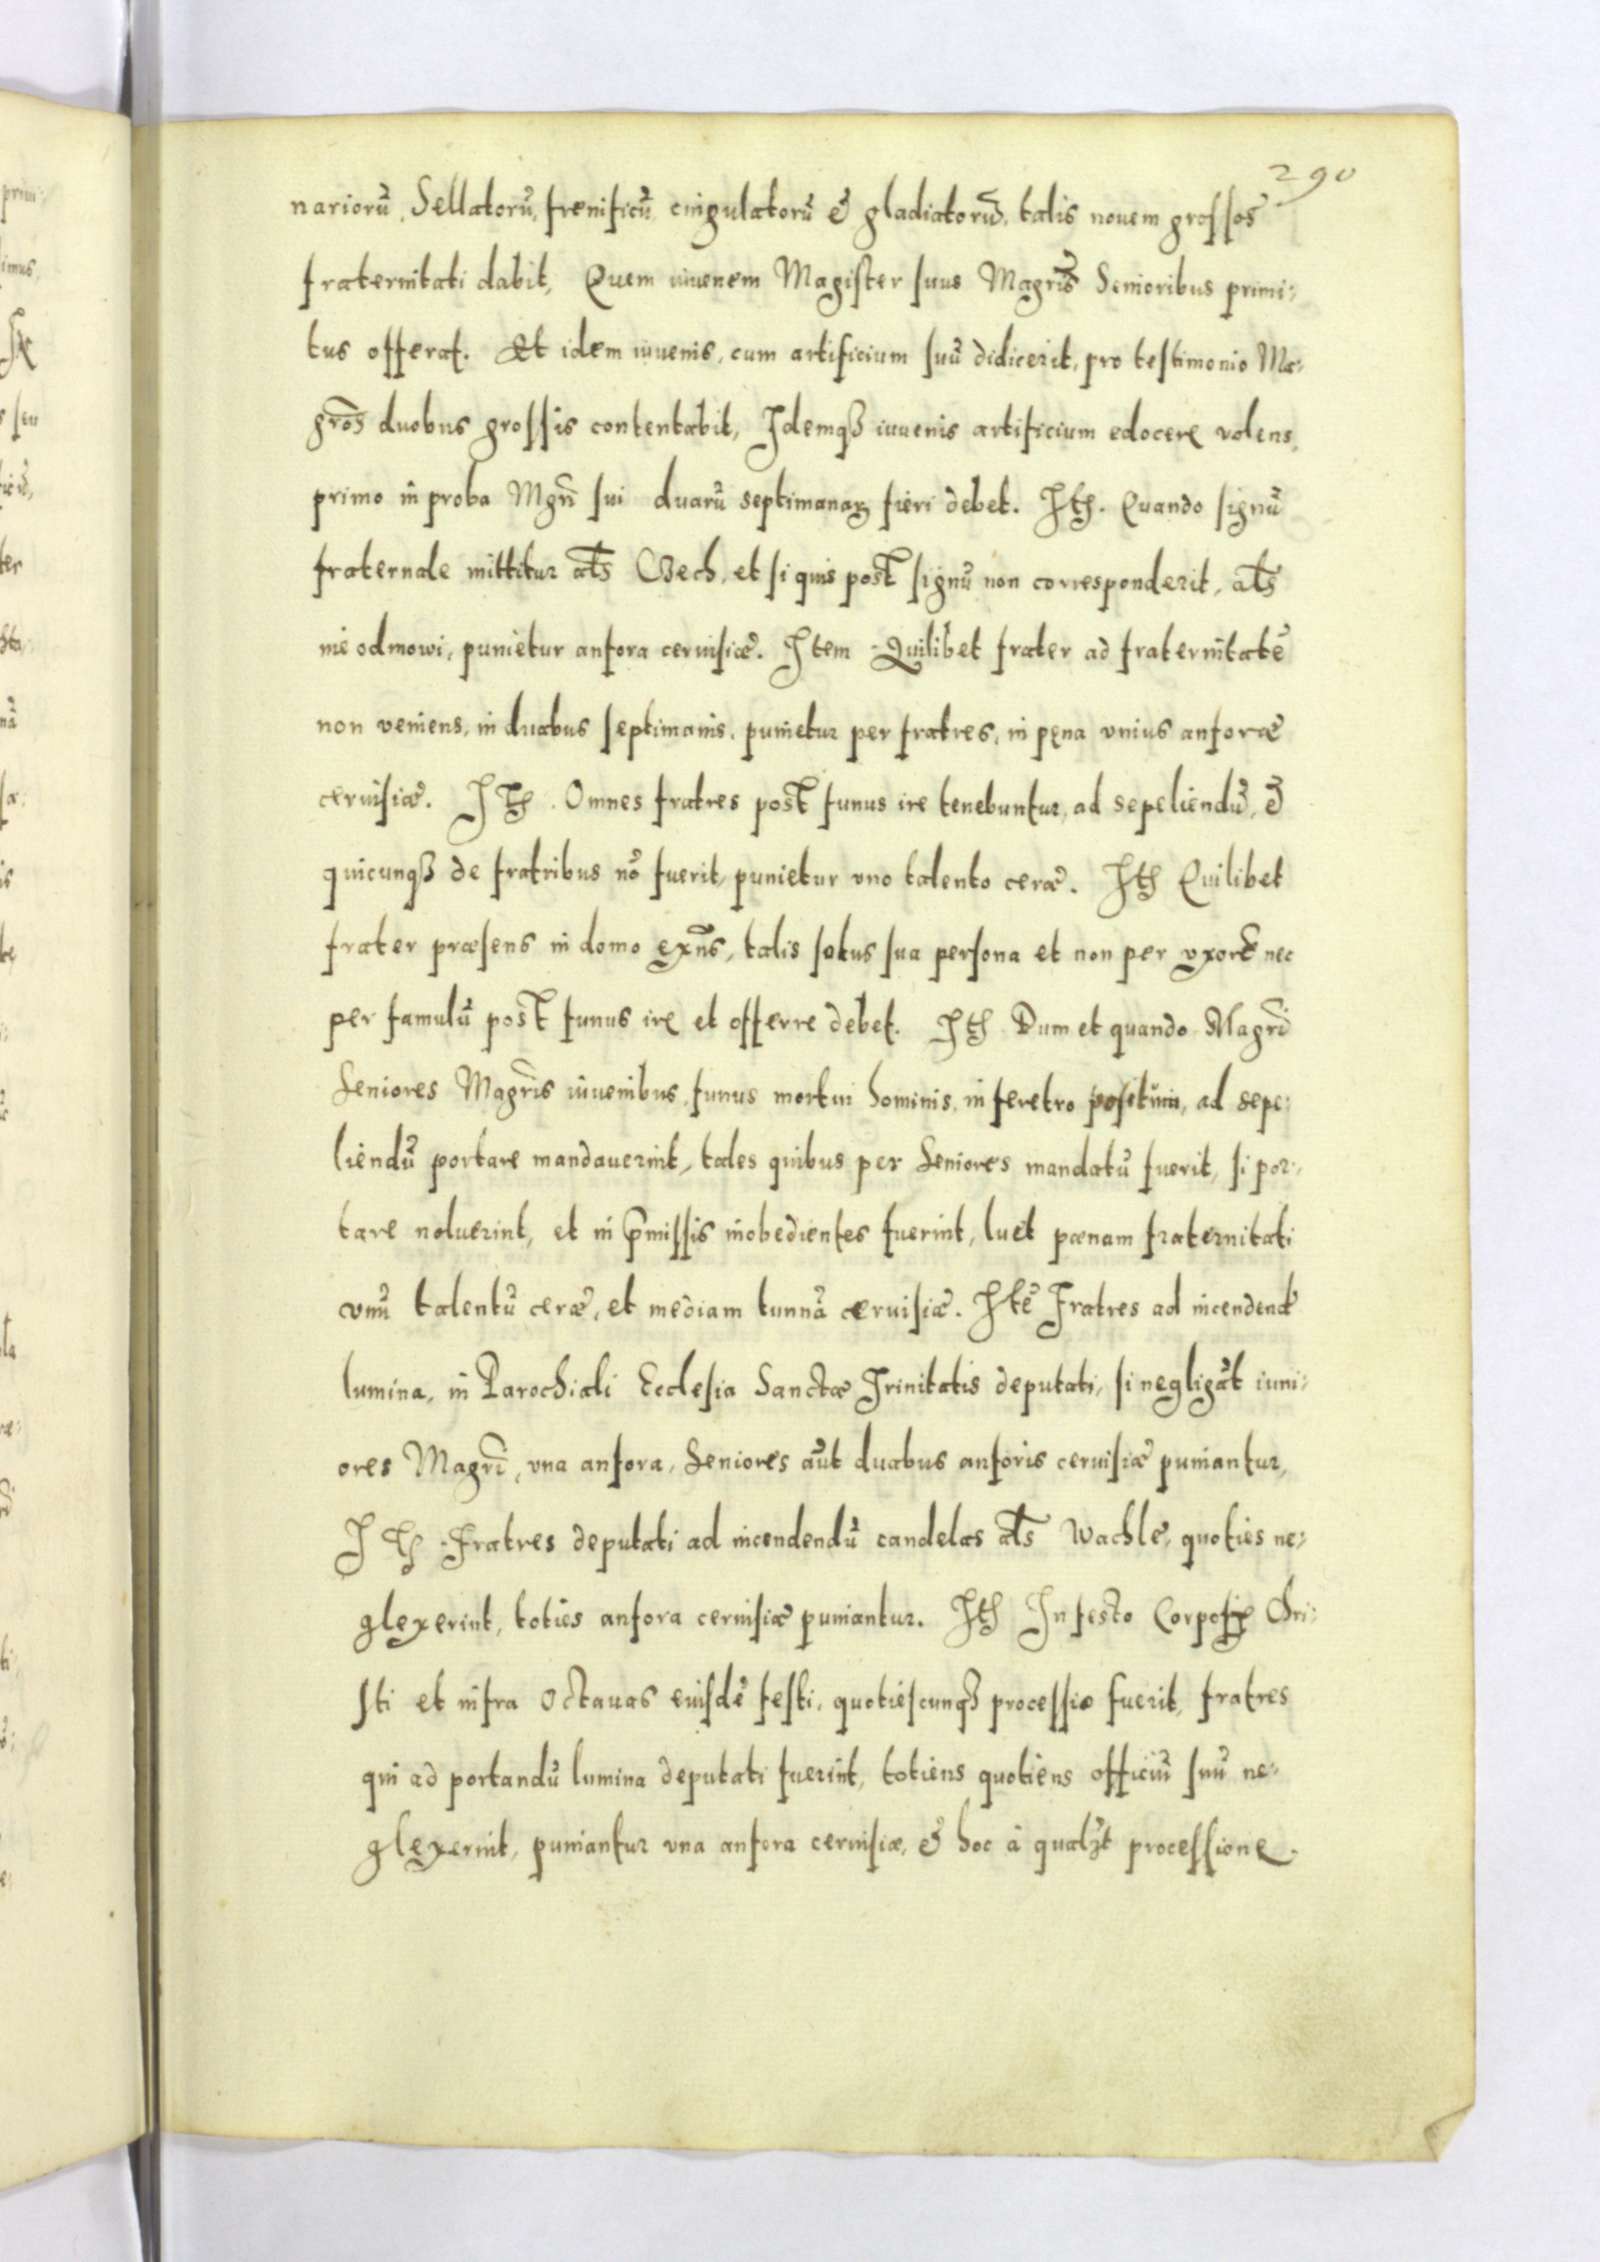 290
nariorũ, Sellatorũ, frenificũ cingulatorũ & gladiatorũ, talis nouem grossos
fraternitati dabit, Quem iuuenem Magister suus Magrĩs Senioribus primi:
tus offerat. Et idem iuuenis, cum artificium suũ didicerit, pro testimonio Ma:
grõs duobus grossis contentabit, Idemqꝫ iuuenis artificium edocere volens,
primo in proba Mgrĩ sui duarũ septimanaꝝ fieri debet. Itꝫ. Quando signũ
fraternale mittitur als̃ Czech, et si quis post signũ non corresponderit, als̃
nie odmowi, punietur anfora ceruisiæ. Item Quilibet frater ad fraternitatẽ
non veniens, in duabus septimanis, punietur per fratres, in pęna vnius anforæ
ceruisiæ. Itꝫ. Omnes fratres post funus ire tenebuntur, ad sepeliendũ, &
quicunqꝫ de fratribus nõ fuerit, punietur vno talento ceræ. Itꝫ Quilibet
frater præsens in domo exñs, talis solus sua persona et non per vxorẽ nec
per famulũ post funus ire et offerre debet. Itꝫ Dum et quando Magrĩ
Seniores Magrĩs iuuenibus, funus mortui hominis, in feretro positum, ad sepe:
liendũ portare mandauerint, tales quibus per Seniores mandatũ fuerit, si por:
tare noluerint, et in p̃missis inobedientes fuerint, luẽt pœnam fraternitati
vnũ talentũ ceræ, et mediam tunnã ceruisiæ. Itẽ Fratres ad incendend
lumina, in Parochiali Ecclesia Sanctæ Trinitatis deputati, si negligãt iuni:
ores Magrĩ, vna anfora, Seniores aũt duabus anforis ceruisiæ puniantur,
Itꝫ. Fratres deputati ad incendendũ candelas als̃ Wachle, quoties ne:
glexerint, toties anfora ceruisiæ puniantur. Itꝫ In festo Corporis Chri:
sti et infra octauas eiusdẽ festi, quotiescunqꝫ processio fuerit, fratres
qui ad portandũ lumina deputati fuerint, totiens quotiens officiũ suũ ne:
glexerint, puniantur vna anfora ceruisiæ, & hoc à qualꝫt processione.